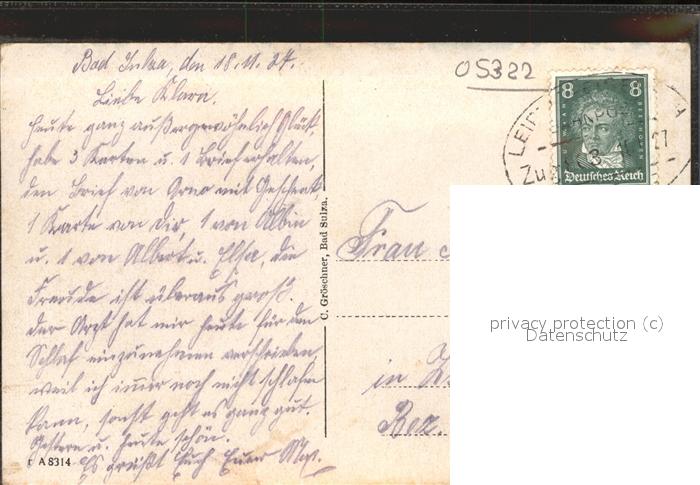 Bad Sulza, den 18.11.27.
Liebe Klara.
Heute ganz außergewöhnlich Glück,
habe 3 Karten u. 1 Brief erhalten,
den Brief von Arno mit
1 Karte von Dir, 1 von Albin
u. 1 von Albert u. Elsa, die
Freude ist überaus groß.
Der Arzt hat mir heute für den
Schlaf einzunehmen verschrieben,
weil ich immer noch nicht schlafen
kann, sonst geht es ganz gut.
Gestern u. heute schön.
Es grüßt Euch Euer
r A 8314
C. Gröschner, Bad Sulza.
05322
8 8
Deutsches Reich
LEIP
BAHNPOST
Zug
27
Frau
in
Bez.
privacy protection (c)
Datenschutz